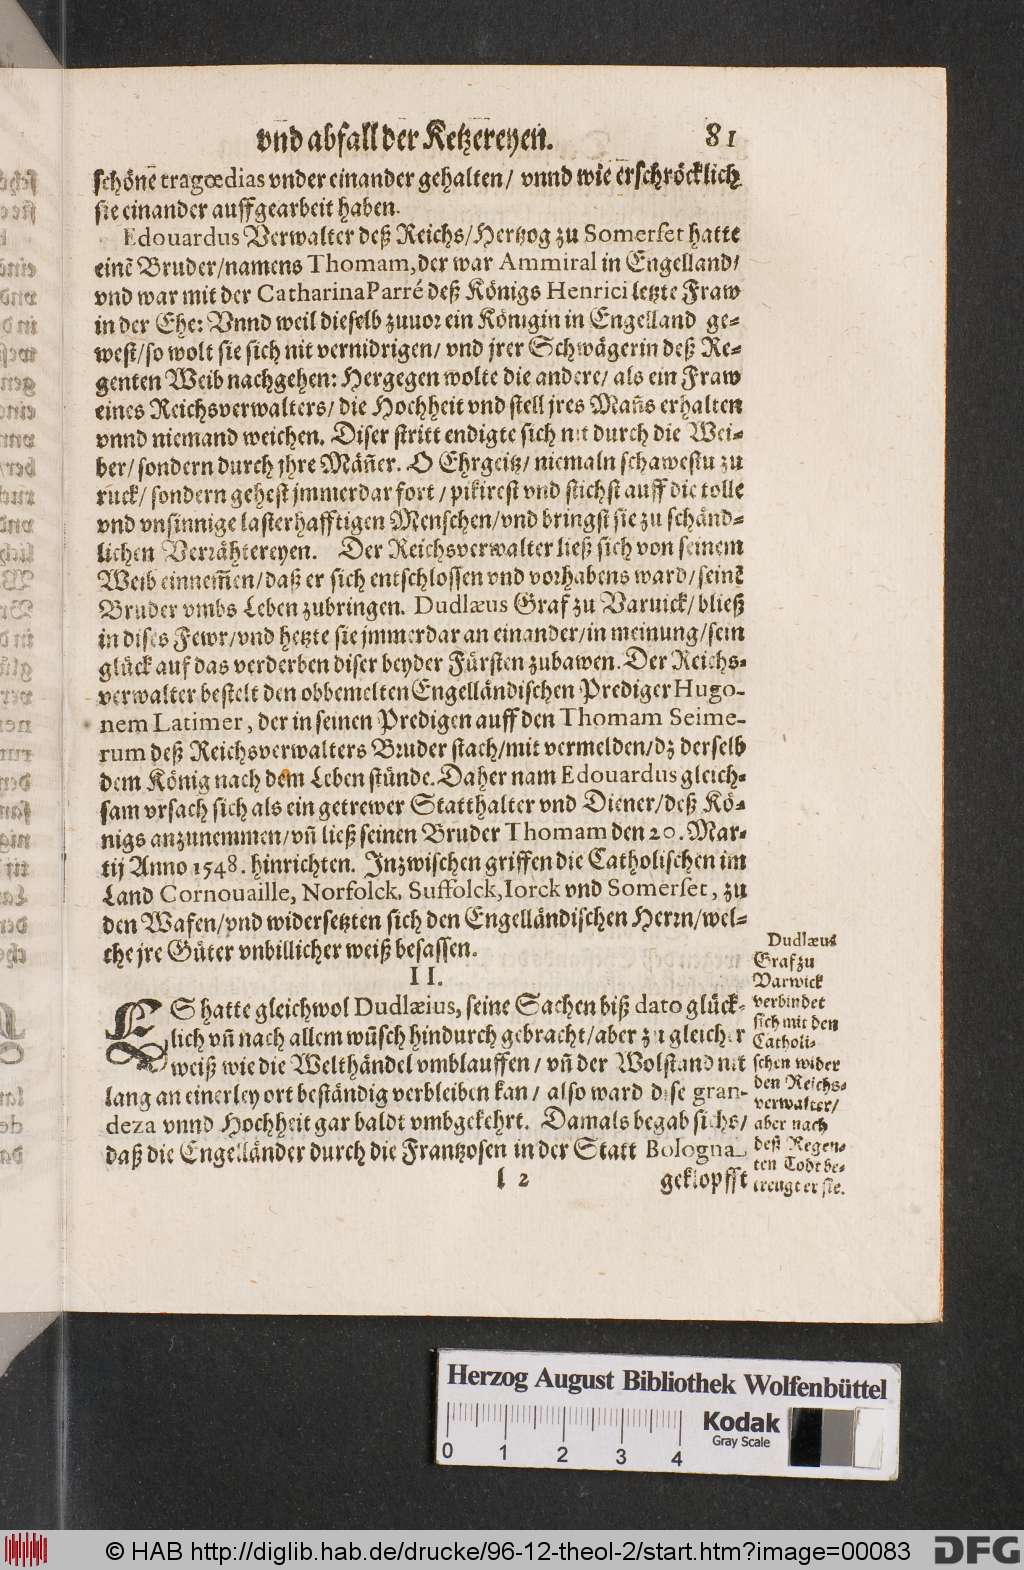 vnd abfall der Ketzereyen. 81
schönē tragœdias vnder einander gehalten/ vnnd wie erschröcklich
sie einander auffgearbeit haben.
Edouardus Verwalter deß Reichs/Hertzog zu Somerset hatte
einē Bruder/namens Thomam, der war Ammiral in Engelland/
vnd war mit der Catharina Parré deß Königs Henrici letzte Fraw
in der Ehe: Vnnd weil dieselb zuuor ein Königin in Engelland ge-
west/so wolt sie sich nit vernidrigen/ vnd jrer Schwägerin deß Re-
genten Weib nachgehen: Hergegen wolte die andere/ als ein Fraw
eines Reichsverwalters/ die Hochheit vnd stell jres Mañs erhalten
vnnd niemand weichen. Diser stritt endigte sich nit durch die Wei-
ber/sondern durch jhre Mäñer. O Ehrgeitz/ niemaln schawestu zu
ruck/ sondern gehest jmmerdar fort/ pikirest vnd stichst auff die tolle
vnd vnsinnige lasterhafftigen Menschen/vnd bringst sie zu schänd-
lichen Verrähtereyen. Der Reichsverwalter ließ sich von seinem
Weib einnem̃en/daß er sich entschlossen vnd vorhabens ward/seinē
Bruder vmbs Leben zubringen. Dudlæus Graf zu Varuick/ bließ
in dises Fewr/vnd hetzte sie jmmerdar an einander/in meinung/sein
glück auf das verderben diser beyder Fürsten zubawen. Der Reichs-
verwalter bestelt den obbemelten Engelländischen Prediger Hugo-
nem Latimer, der in seinen Predigen auff den Thomam Seime-
rum deß Reichsverwalters Bruder stach/mit vermelden/dz derselb
dem König nach dem Leben stünde. Daher nam Edouardus gleich-
sam vrsach sich als ein getrewer Statthalter vnd Diener/deß Kö-
nigs anzunemmen/vñ ließ seinen Bruder Thomam den 20. Mar-
tij Anno 1548. hinrichten. Inzwischen griffen die Catholischen im
Land Cornouaille, Norfolck, Suffolck, Iorck vnd Somerset, zu
den Wafen/vnd widersetzten sich den Engelländischen Herrn/wel-
che jre Güter vnbillicher weiß besassen.
II.
ES hatte gleichwol Dudlæius, seine Sachen biß dato glück-
lich vñ nach allem wūsch hindurch gebracht/aber zu gleicher
weiß wie die Welthändel vmblauffen/ vñ der Wolstand nit
lang an einerley ort beständig verbleiben kan/ also ward dise gran-
deza vnnd Hochheit gar baldt vmbgekehrt. Damals begab sichs/
daß die Engelländer durch die Frantzosen in der Statt Bologna
l 2 geklopfft
Dudlæus
Graf zu
Varwick
verbindet
sich mit den
Catholi-
schen wider
den Reichs-
verwalter/
aber nach
deß Regen-
ten Todt be-
treugt er sie.
Herzog August Bibliothek Wolfenbüttel
0 1 2 3 4
Kodak
Gray Scale
© HAB http://diglib.hab.de/drucke/96-12-theol-2/start.htm?image=00083
DFG